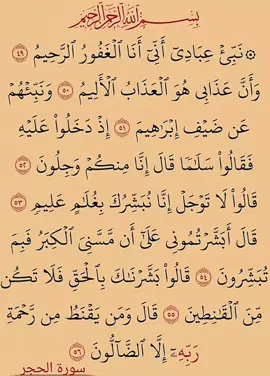 بِسْمِ اللَّهِ الرَّحْمَٰنِ الرَّحِيمِ
۞ نَبِّئْ عِبَادِيٓ أَنِّيٓ أَنَا ٱلْغَفُورُ ٱلرَّحِيمُ ٤٩
وَأَنَّ عَذَابِي هُوَ ٱلْعَذَابُ ٱلْأَلِيمُ ٥٠ وَنَبِّئْهُمْ
عَن ضَيْفِ إِبْرَٰهِيمَ ٥١ إِذْ دَخَلُوا۟ عَلَيْهِ
فَقَالُوا۟ سَلَٰمًا قَالَ إِنَّا مِنكُمْ وَجِلُونَ ٥٢
قَالُوا۟ لَا تَوْجَلْ إِنَّا نُبَشِّرُكَ بِغُلَٰمٍ عَلِيمٍ ٥٣
قَالَ أَبَشَّرْتُمُونِي عَلَىٰٓ أَن مَّسَّنِيَ ٱلْكِبَرُ فَبِمَ
تُبَشِّرُونَ ٥٤ قَالُوا۟ بَشَّرْنَٰكَ بِٱلْحَقِّ فَلَا تَكُن
مِّنَ ٱلْقَٰنِطِينَ ٥٥ قَالَ وَمَن يَقْنَطُ مِن رَّحْمَةِ
رَبِّهِۦٓ إِلَّا ٱلضَّآلُّونَ ٥٦
سورة الحجر